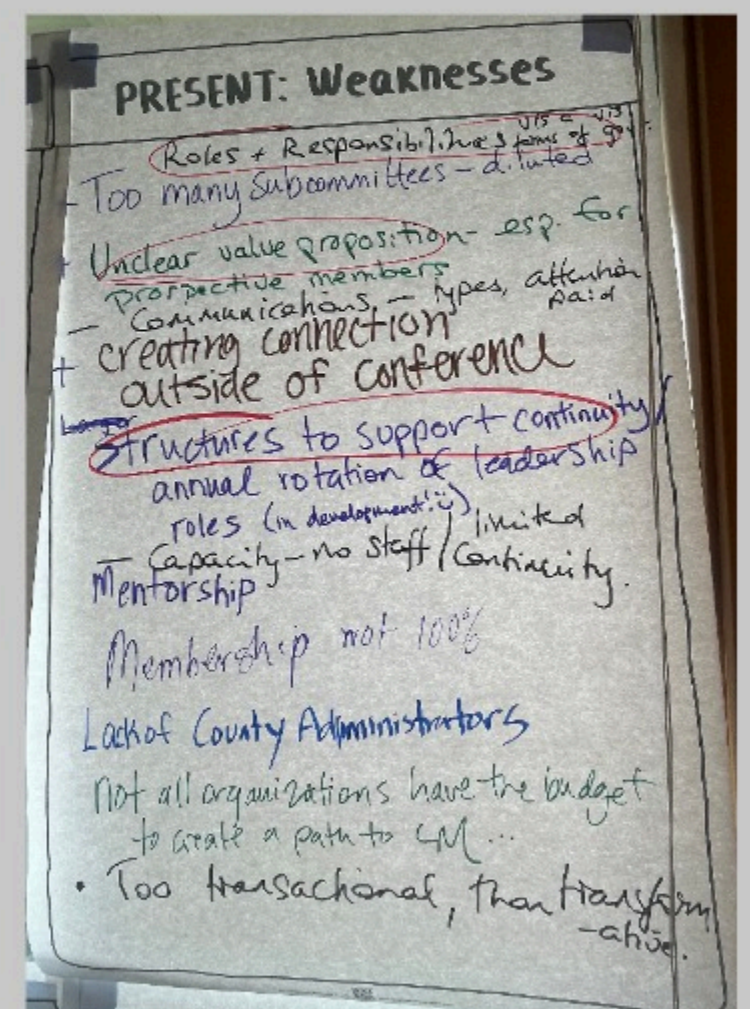 PRESENT: Weaknesses
vis a vis
Roles + Responsibilities forms of gov.
- Too many Subcommittees - diluted
+ Unclear value proposition - esp. for
prospective members
- Communications - types, attention
paid
+ creating connection
outside of conference
Structures to support continuity/
annual rotation of leadership
roles (in development! :))
- Capacity - no staff / limited
Continuity.
Mentorship
Membership not 100%
Lack of County Administrators
Not all organizations have the budget
to create a path to CM...
• Too transactional, than transform
-ative.